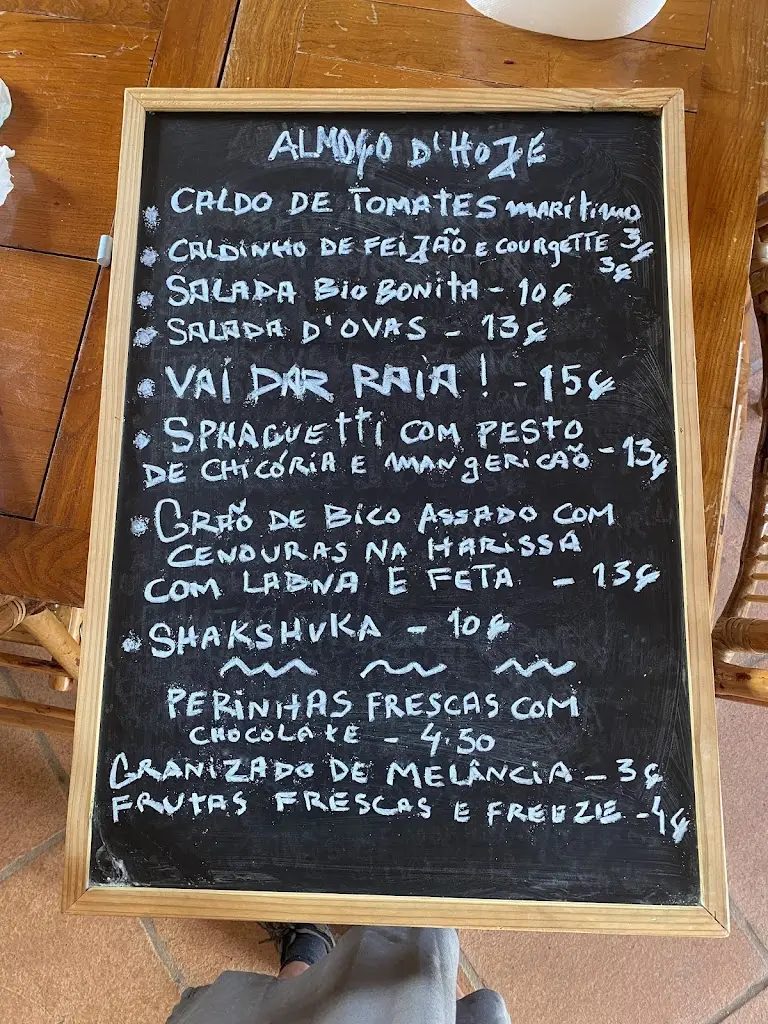 ALMOÇO D'HOJE
CALDO DE TOMATES MARÍTIMO
3€
CALDINHO DE FEIJÃO E COURGETTE
3€
SALADA BIO BONITA - 10€
SALADA D'OVAS - 13€
VAI DAR RAIA! - 15€
SPHAGUETTI COM PESTO
DE CHICÓRIA E MANGERICAÕ - 13€
GRAÕ DE BICO ASSADO COM
CENOURAS NA HARISSA
COM LABNA E FETA - 13€
SHAKSHUKA - 10€
PERINHAS FRESCAS COM
CHOCOLATE - 4.50
GRANIZADO DE MELÂNCIA - 3€
FRUTAS FRESCAS E FREEZIE - 4€